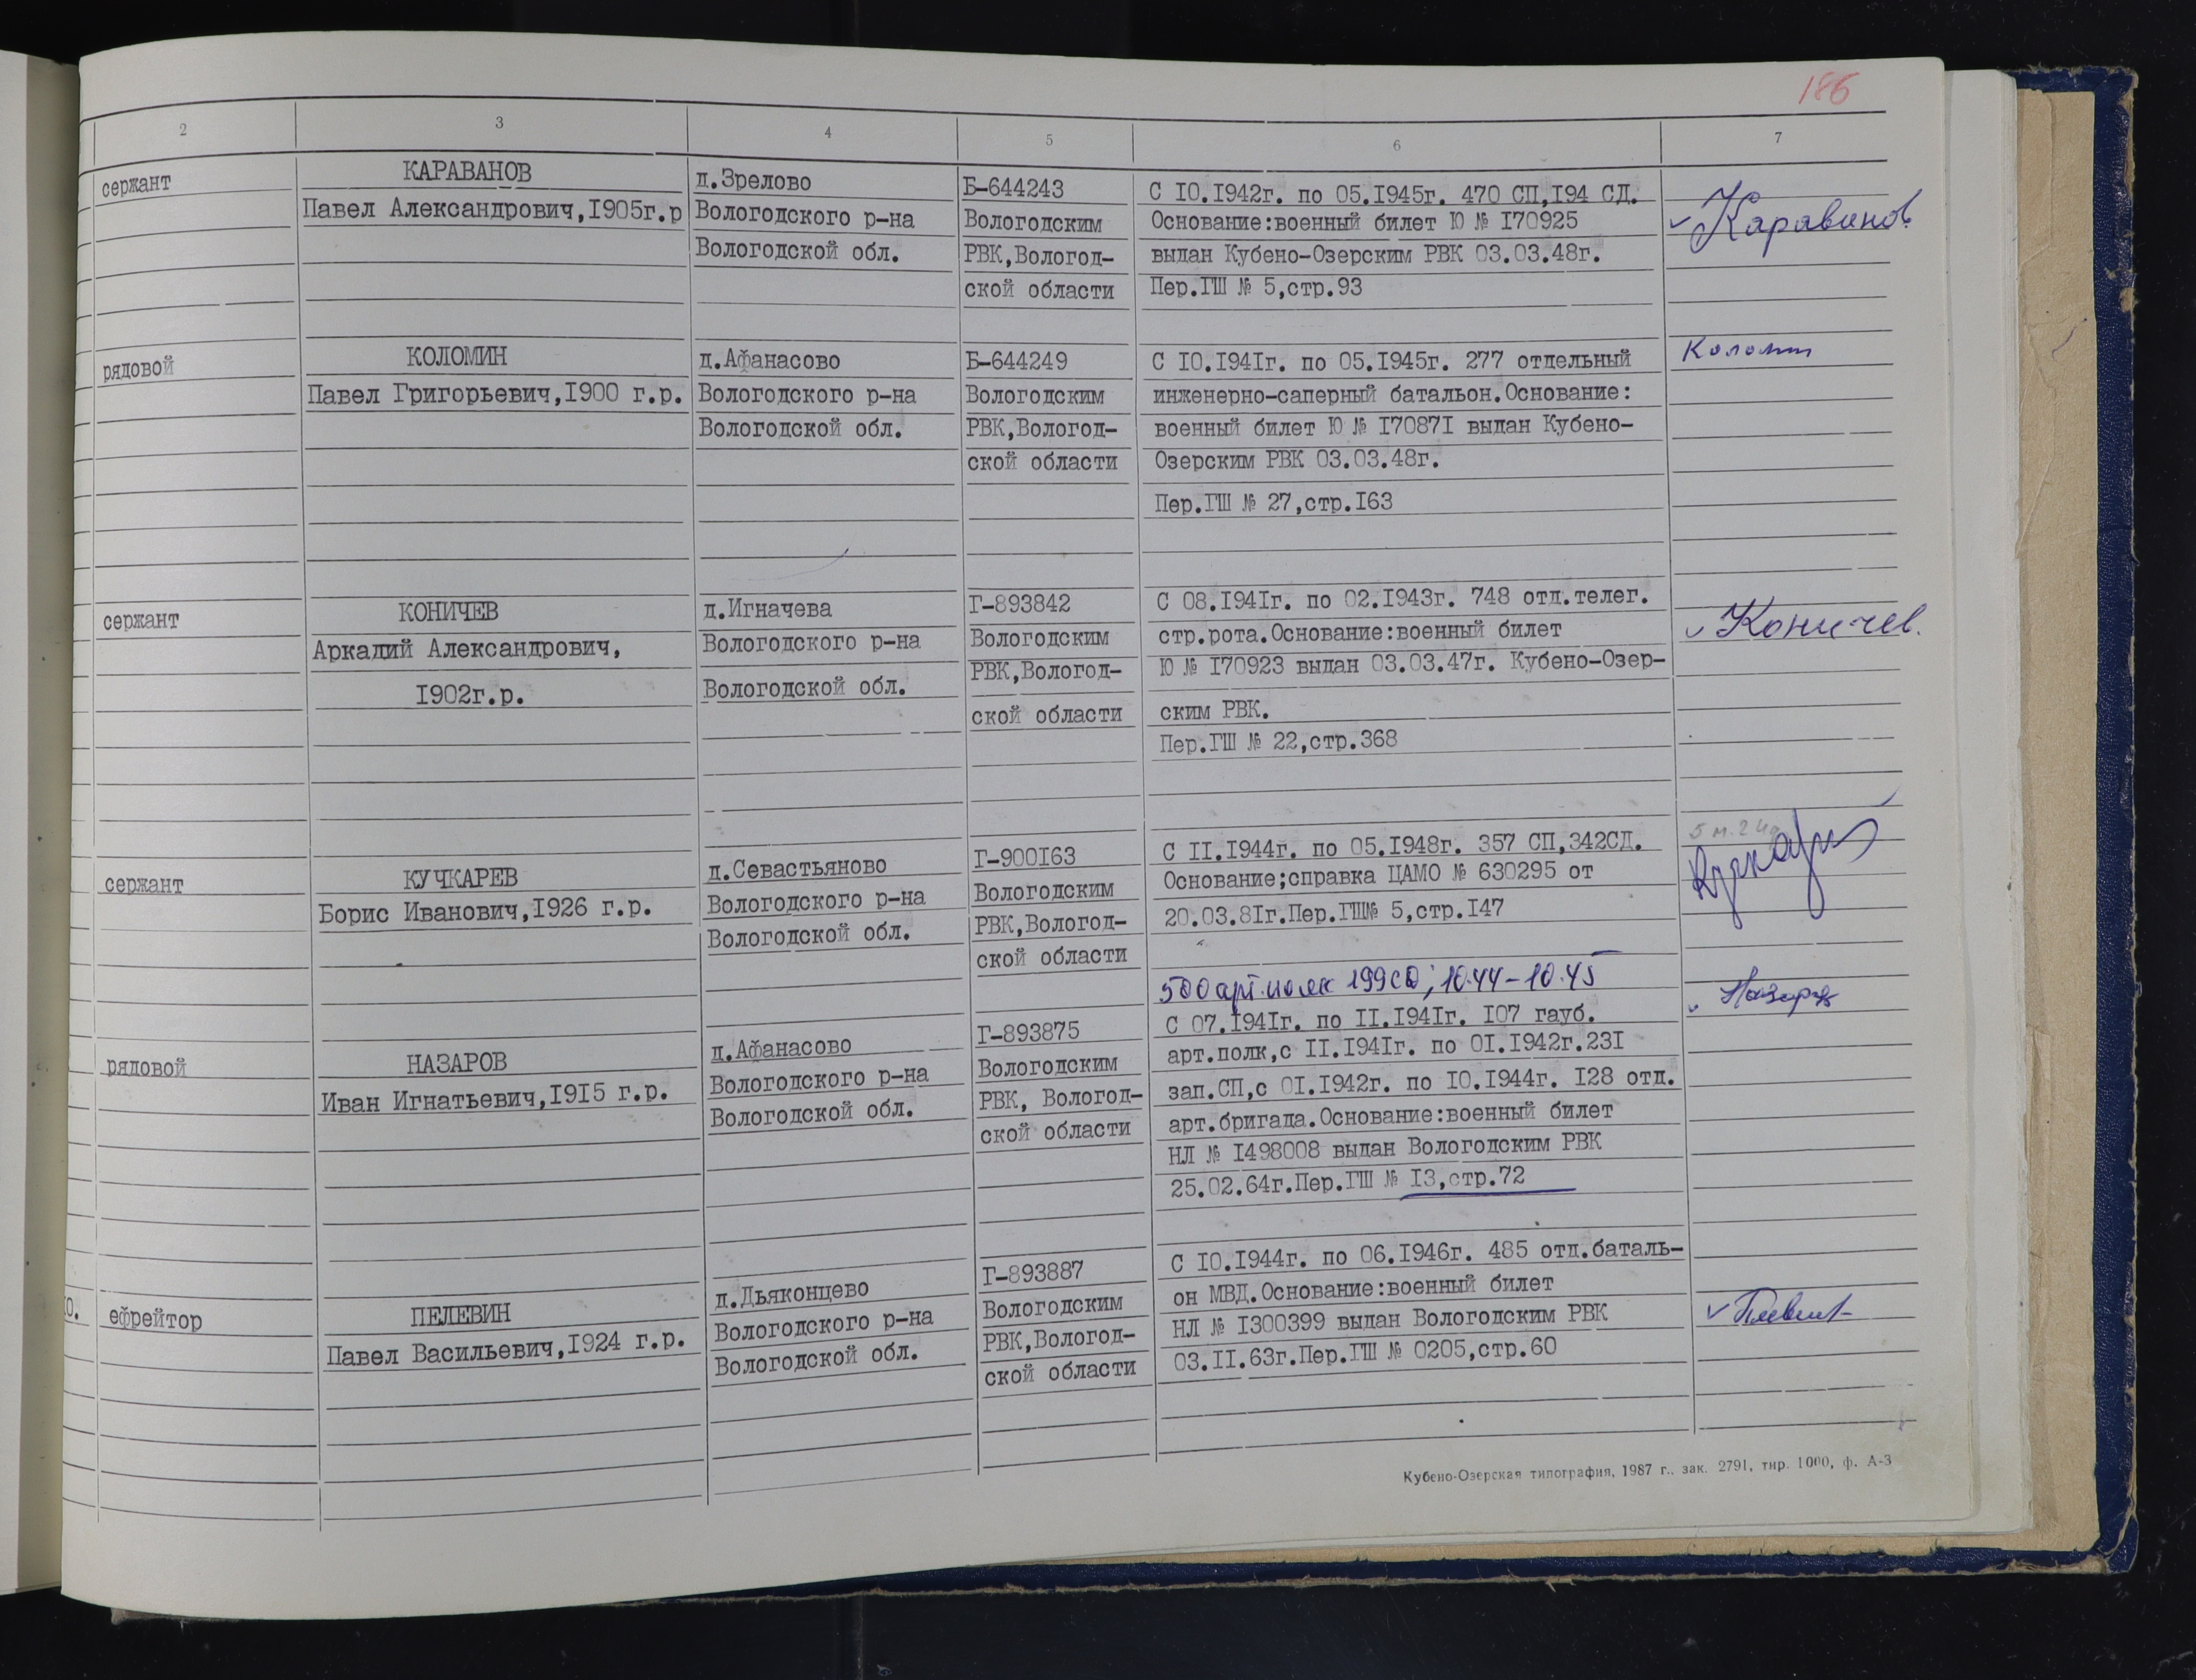 186
2 3 4 5 6 7
сержант
КАРАВАНОВ
Павел Александрович,I905г.р
д.Зрелово
Вологодского р-на
Вологодской обл.
Б-644243
Вологодским
РВК,Вологод-
ской области
С IO.I942г. по 05.I945г. 470 СП,I94 СД.
Основание:военный билет Ю № I70925
выдан Кубено-Озерским РВК 03.03.48г.
Пер.ГШ № 5,стр.93
Караванов
рядовой
КОЛОМИН
Павел Григорьевич,I900 г.р.
д.Афанасово
Вологодского р-на
Вологодской обл.
Б-644249
Вологодским
РВК,Вологод-
ской области
С IO.I94Iг. по 05.I945г. 277 отдельный
инженерно-саперный батальон.Основание:
военный билет Ю № I7087I выдан Кубено-
Озерским РВК 03.03.48г.
Пер.ГШ № 27,стр.I63
Коломин
сержант
КОНИЧЕВ
Аркадий Александрович,
I902г.р.
д.Игначева
Вологодского р-на
Вологодской обл.
Г-893842
Вологодским
РВК,Вологод-
ской области
С 08.I94Iг. по 02.I943г. 748 отд.телег.
стр.рота.Основание:военный билет
Ю № I70923 выдан 03.03.47г. Кубено-Озер-
ским РВК.
Пер.ГШ № 22,стр.368
Коничев.
сержант
КУЧКАРЕВ
Борис Иванович,I926 г.р.
д.Севастьяново
Вологодского р-на
Вологодской обл.
Г-900I63
Вологодским
РВК,Вологод-
ской области
С II.I944г. по 05.I948г. 357 СП,342СД.
Основание;справка ЦАМО № 630295 от
20.03.8Iг.Пер.ГШ№ 5,стр.I47
500 арт.полк 199 СД; 10.44-10.45
рядовой
НАЗАРОВ
Иван Игнатьевич,I9I5 г.р.
д.Афанасово
Вологодского р-на
Вологодской обл.
Г-893875
Вологодским
РВК, Вологод-
ской области
С 07.I94Iг. по II.I94Iг. I07 гауб.
арт.полк,с II.I94Iг. по OI.I942г.23I
зап.СП,с OI.I942г. по IO.I944г. I28 отд.
арт.бригада.Основание:военный билет
НЛ № I498008 выдан Вологодским РВК
25.02.64г.Пер.ГШ № I3,стр.72
Назаров
0.
ефрейтор
ПЕЛЕВИН
Павел Васильевич,I924 г.р.
д.Дьяконцево
Вологодского р-на
Вологодской обл.
Г-893887
Вологодским
РВК,Вологод-
ской области
С IO.I944г. по 06.I946г. 485 отд.баталь-
он МВД.Основание:военный билет
НЛ № I300399 выдан Вологодским РВК
03.II.63г.Пер.ГШ № 0205,стр.60
Кубено-Озерская типография, 1987 г., зак. 2791, тир. 1000, ф. А-3